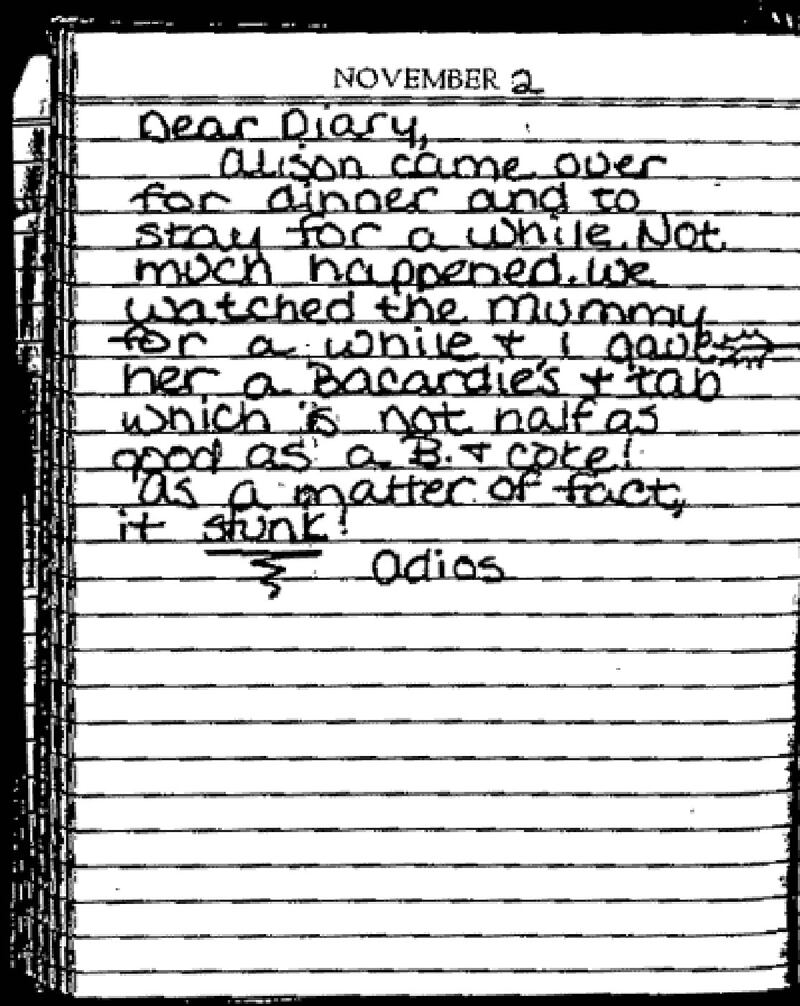 NOVEMBER 2
Dear Diary,
Alison came over
for dinner and to
stay for a while. Not
much happened. We
watched the Mummy
for a while + I gave
her a Bacardie's + tab
which is not half as
good as a B. + coke!
As a matter of fact,
it stunk!
Adios